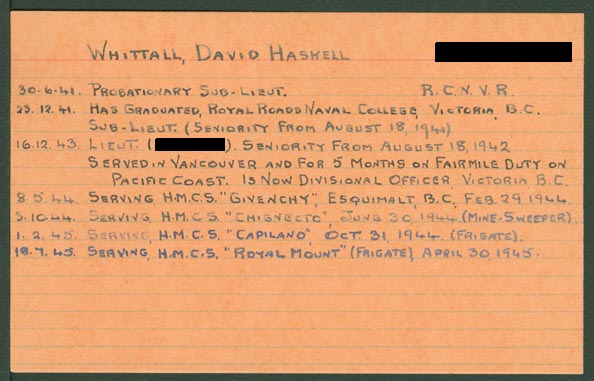 WHITTALL, DAVID HASKELL
30.6.41. PROBATIONARY SUB-LIEUT. R.C.N.V.R.
25.12.41. HAS GRADUATED, ROYAL ROADS NAVAL COLLEGE, VICTORIA, B.C.
SUB-LIEUT. (SENIORITY FROM AUGUST 18, 1941)
16.12.43. LIEUT. ( ). SENIORITY FROM AUGUST 18, 1942
SERVED IN VANCOUVER AND FOR 5 MONTHS ON FAIRMILE DUTY ON
PACIFIC COAST. IS NOW DIVISIONAL OFFICER, VICTORIA, B.C.
8.5.44. SERVING, H.M.C.S. "GIVENCHY", ESQUIMALT, B.C., FEB. 29, 1944.
5.10.44. SERVING, H.M.C.S. "CHIGNECTO", JUNE 30, 1944 (MINE-SWEEPER).
1.2.45. SERVING, H.M.C.S. "CAPILANO", OCT. 31, 1944. (FRIGATE).
18.7.45. SERVING, H.M.C.S. "ROYAL MOUNT" (FRIGATE), APRIL 30, 1945.